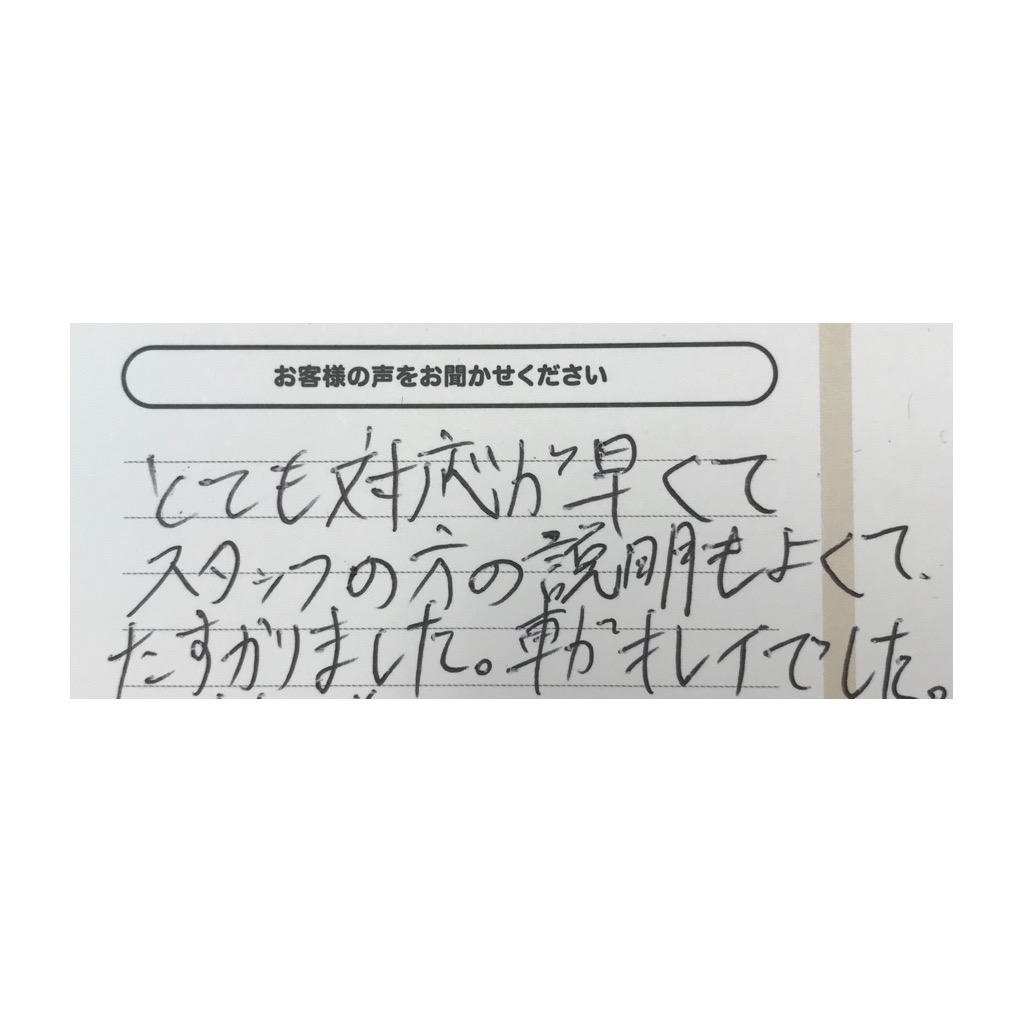 お客様の声をお聞かせください
とても対応が早くて
スタッフの方の説明もよくて
たすかりました。車がキレイでした。